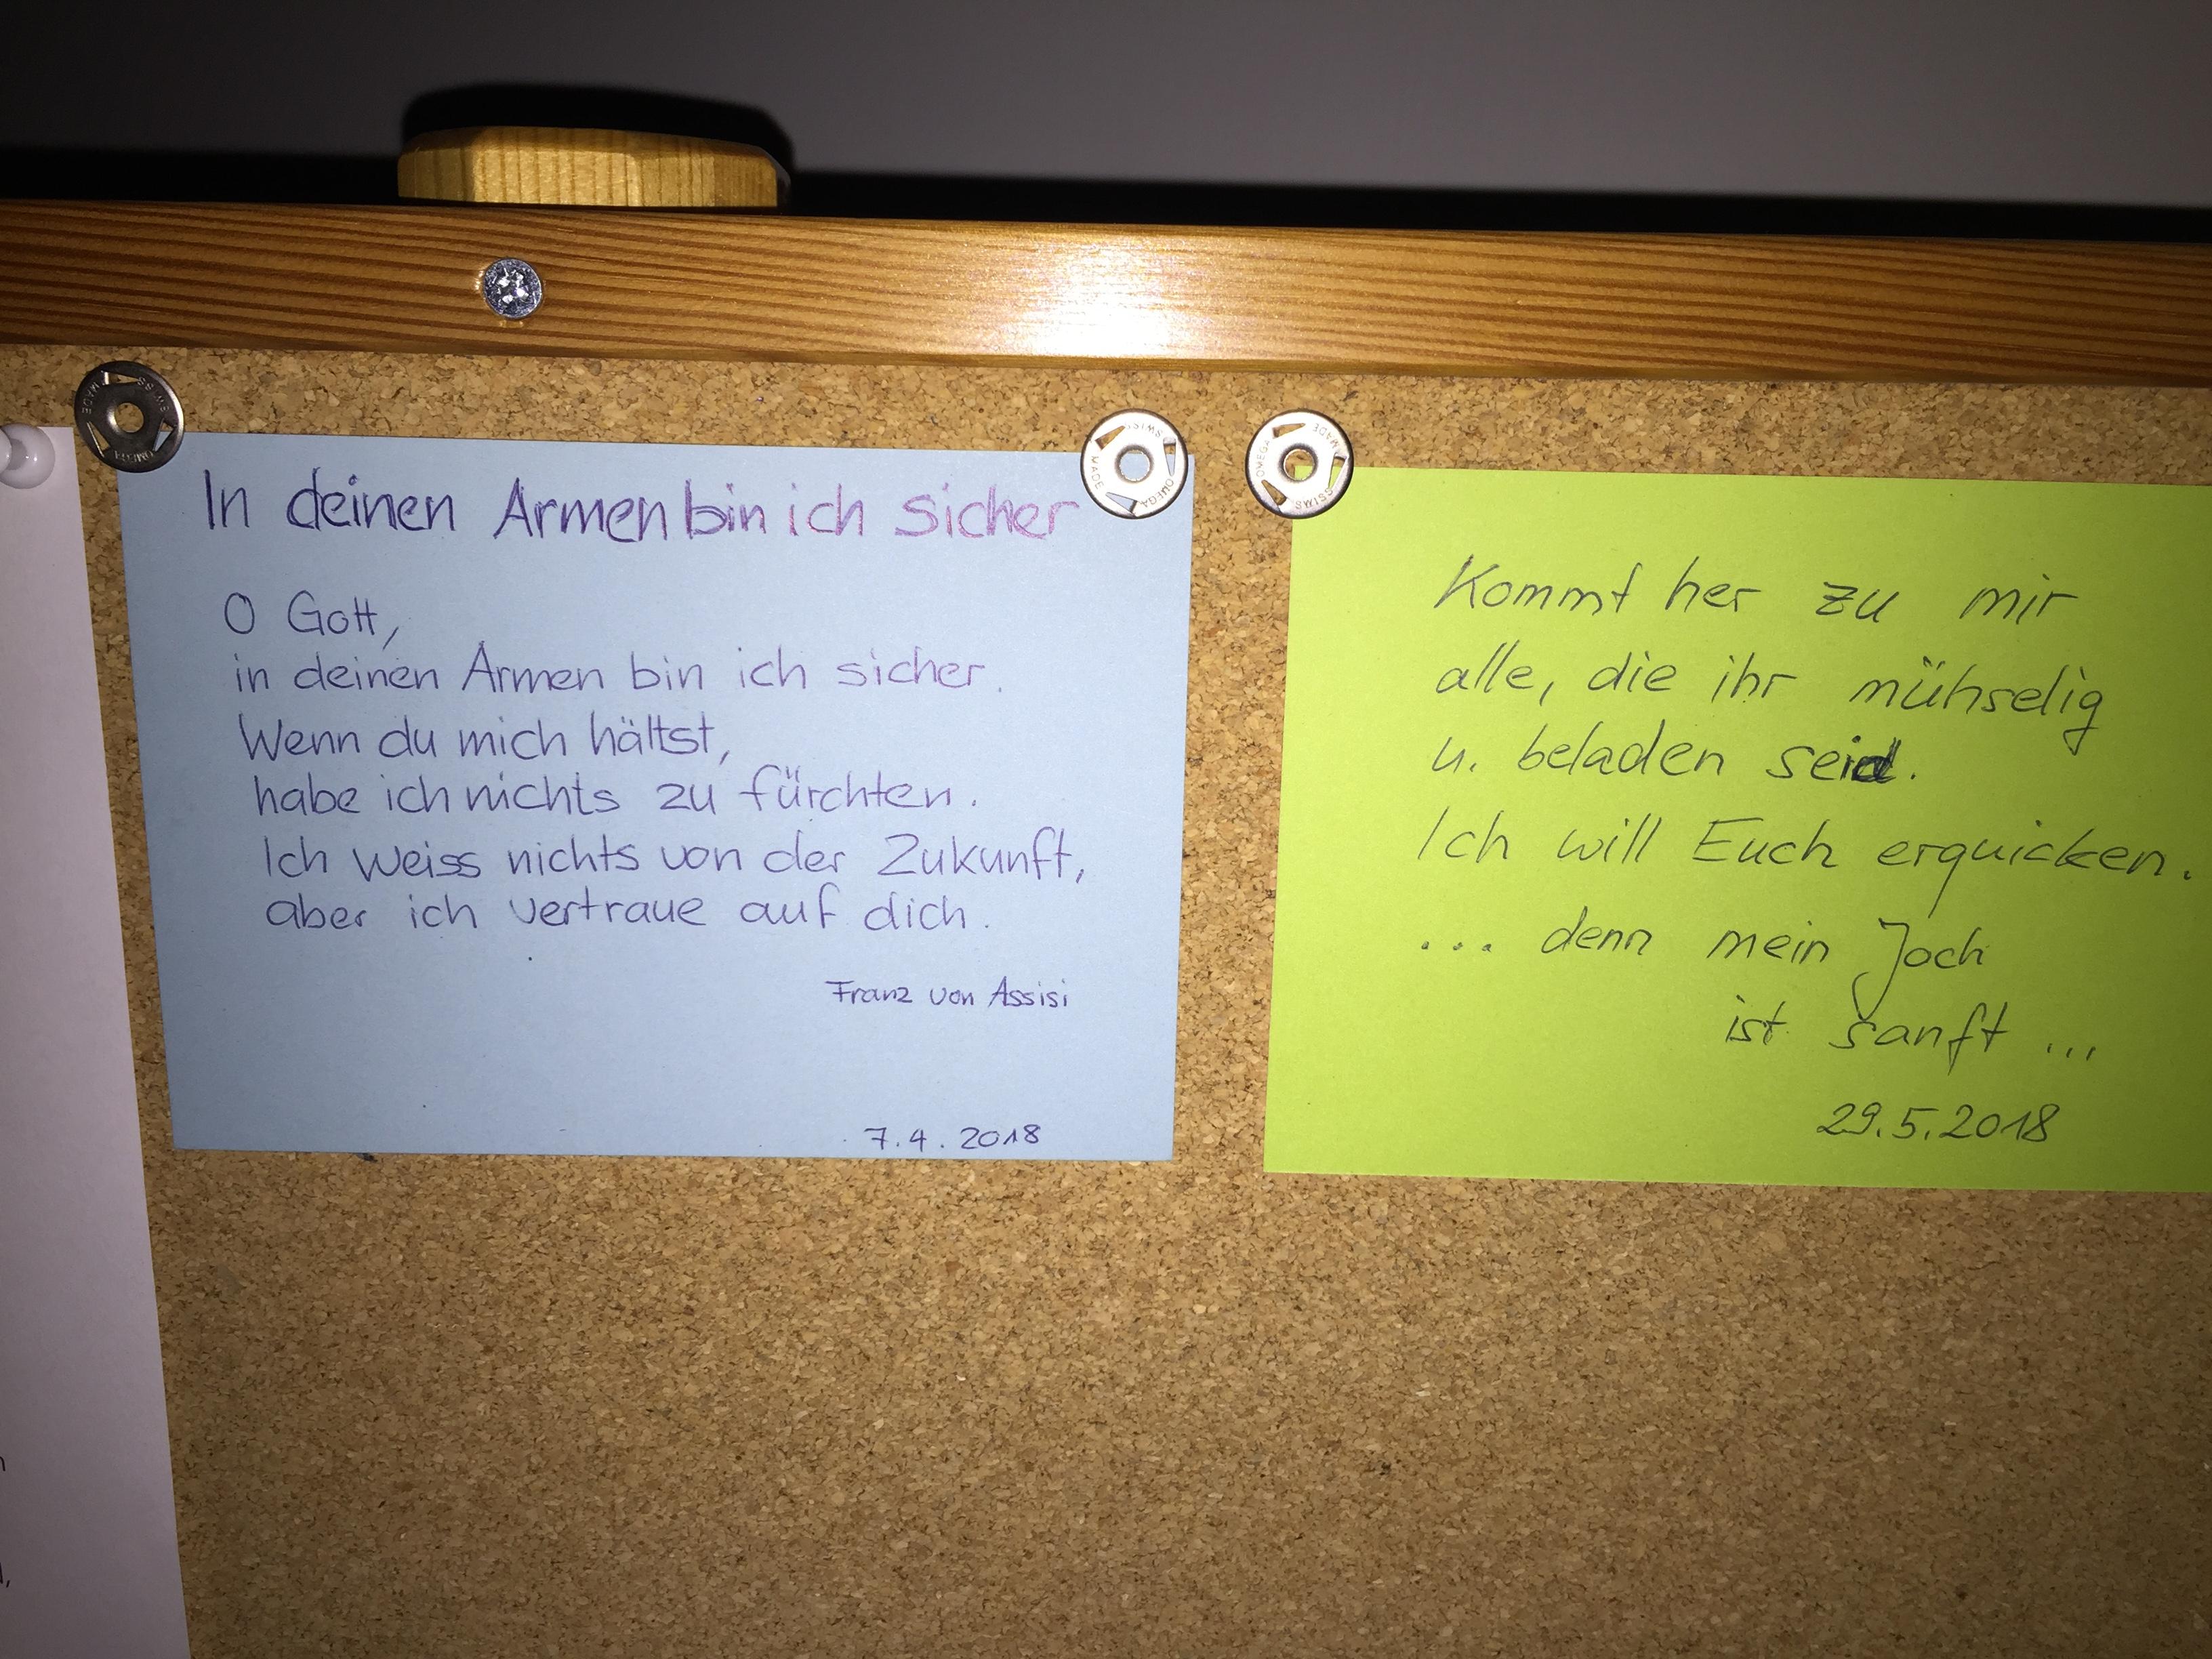 In deinen Armen bin ich sicher
O Gott,
in deinen Armen bin ich sicher.
Wenn du mich hältst,
habe ich nichts zu fürchten.
Ich weiss nichts von der Zukunft,
aber ich vertraue auf dich.
Franz von Assisi
7.4.2018
Kommt her zu mir
alle, die ihr mühselig
u. beladen seid.
Ich will Euch erquicken.
... denn mein Joch
ist sanft ...
29.5.2018
OMEGA SWISS MADE
OMEGA SWISS MADE
OMEGA SWISS MADE